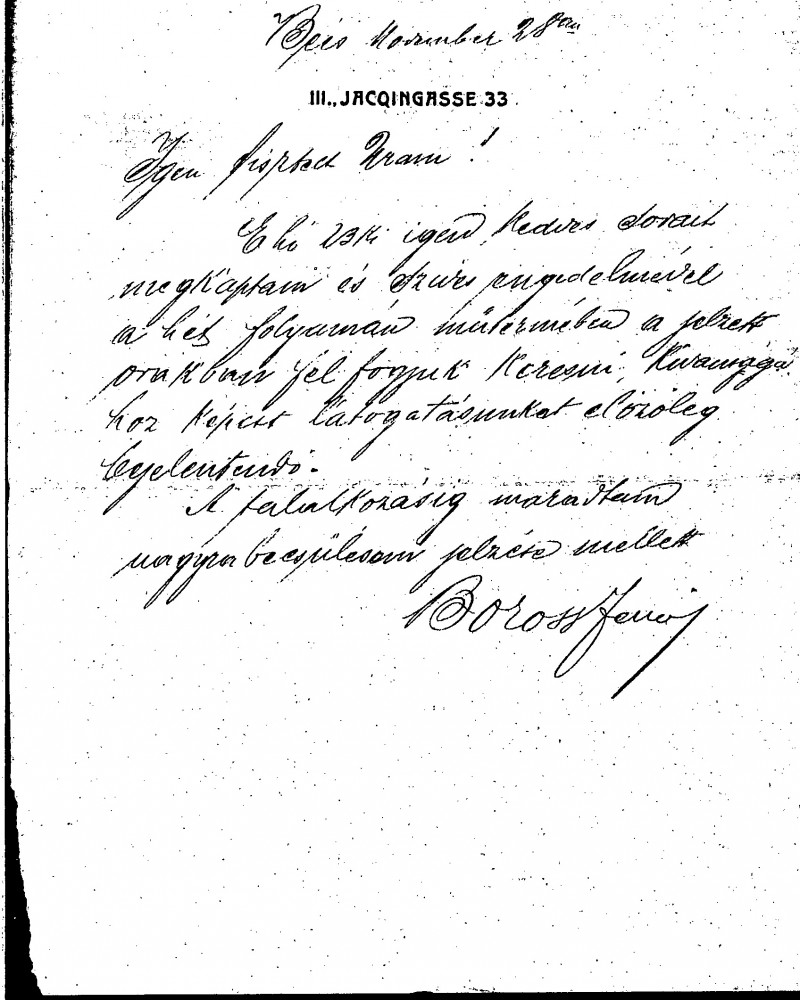 Bécs November 28án
III., JACQINGASSE 33.
Igen tisztelt Uram!
E hó 23ki igen kedves sorait
megkaptam és szives engedelmével
a hét folyamán műtermében a jelzett
órákban fel fogjuk keresni, Kivánságá
hoz képest látogatásunkat előzőleg
bejelentendő.
A talalkozásig maradtam
nagyrabecsülésem jelzése mellett
Boross Jenő